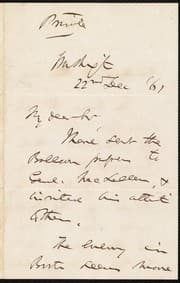 Private
Washgt
22nd Dec '61
My dear Sir
I have sent the
Balloon papers to
Genl. McClellan, &
invited his attent
The Enemy in
seem more